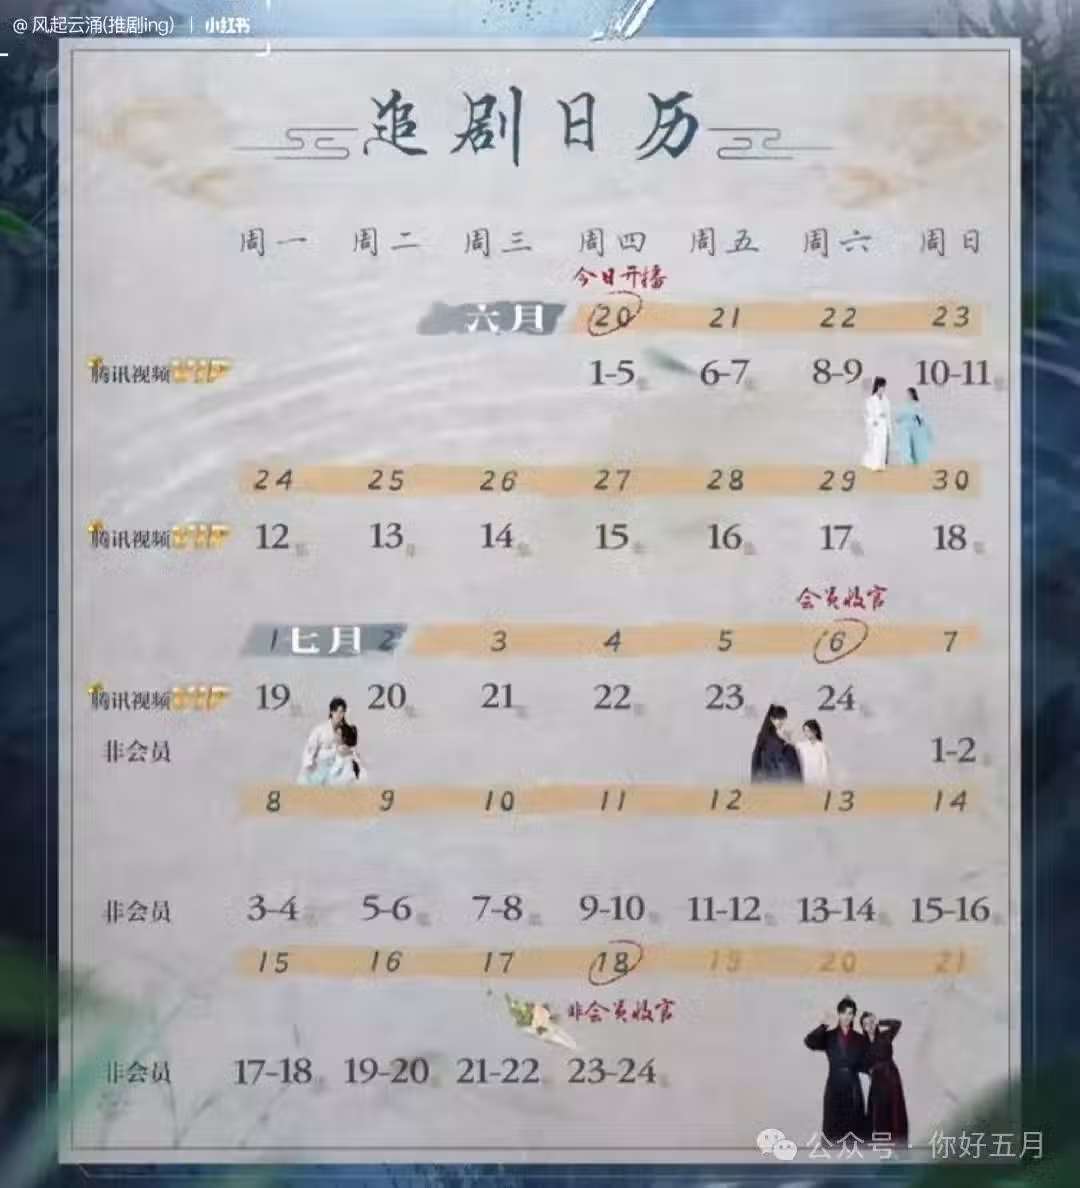 @风起云涌(推剧ing) | 小红书
追剧日历
周一 周二 周三 周四 周五 周六 周日
今日开播
六月 20 21 22 23
腾讯视频VIP 1-5集 6-7集 8-9集 10-11集
24 25 26 27 28 29 30
腾讯视频VIP 12集 13集 14集 15集 16集 17集 18集
会员收官
1 七月 2 3 4 5 6 7
腾讯视频VIP 19集 20集 21集 22集 23集 24集
非会员 1-2集
8 9 10 11 12 13 14
非会员 3-4集 5-6集 7-8集 9-10集 11-12集 13-14集 15-16集
15 16 17 18 19 20 21
非会员收官
非会员 17-18集 19-20集 21-22集 23-24集
公众号·你好五月